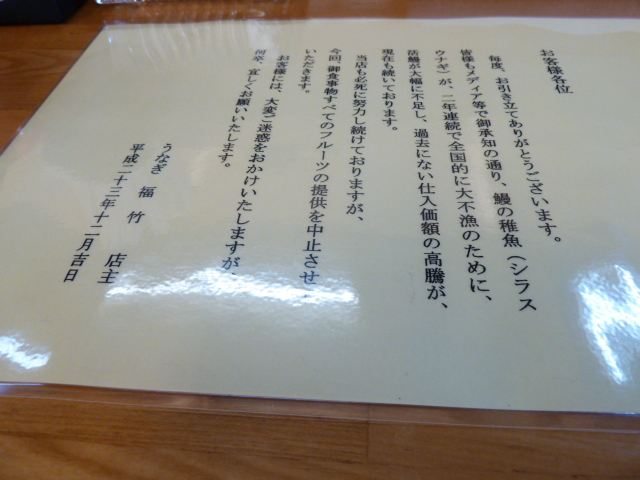 お客様各位
毎度、お引き立てありがとうございます。
皆様もメディア等で御承知の通り、鰻の稚魚(シラス
ウナギ)が、二年連続で全国的に大不漁のために、
活鰻が大幅に不足し、過去にない仕入価額の高騰が、
現在も続いております。
当店も必死に努力し続けておりますが、
今回、御食事物すべてのフルーツの提供を中止させ
いただきます。
お客様には、大変ご迷惑をおかけいたしますが、
何卒、宜しくお願いいたします。
うなぎ 福竹 店主
平成二十三年十二月吉日